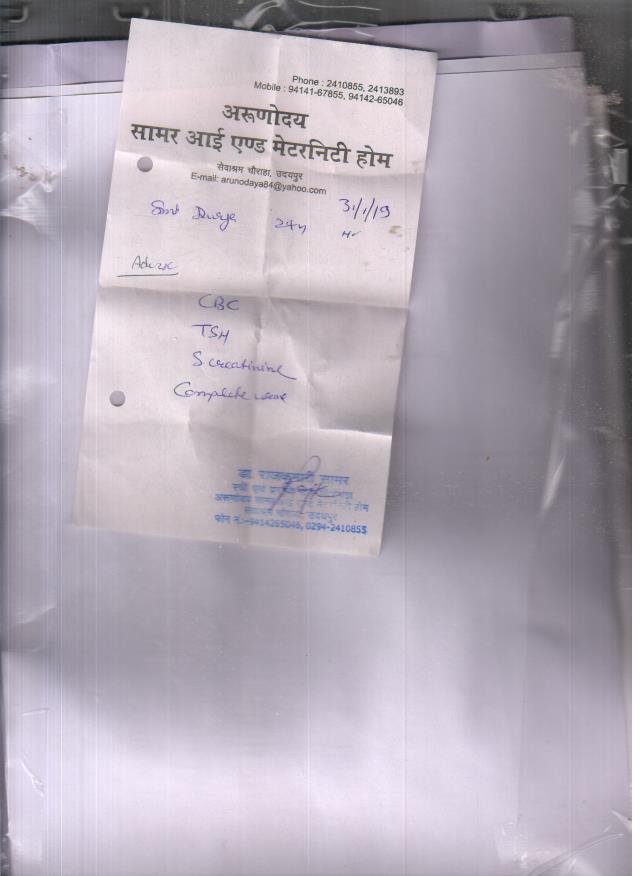 Phone : 2410855, 2413893
Mobile : 94141-67855, 94142-65046
अरूणोदय
सामर आई एण्ड मेटरनिटी होम
सेवाश्रम चौराहा, उदयपुर
E-mail: arunodaya84@yahoo.com
31/1/19
Smt 24y
CBC
TSH
S creatinine
Complete urine
डा. राजकुमारी सामर
स्त्री एवं
अरूणोदय सामर आई एण्ड मेटरनिटी होम
सेवाश्रम चौराहा, उदयपुर
फोन नं.-9414265046, 0294-2410855